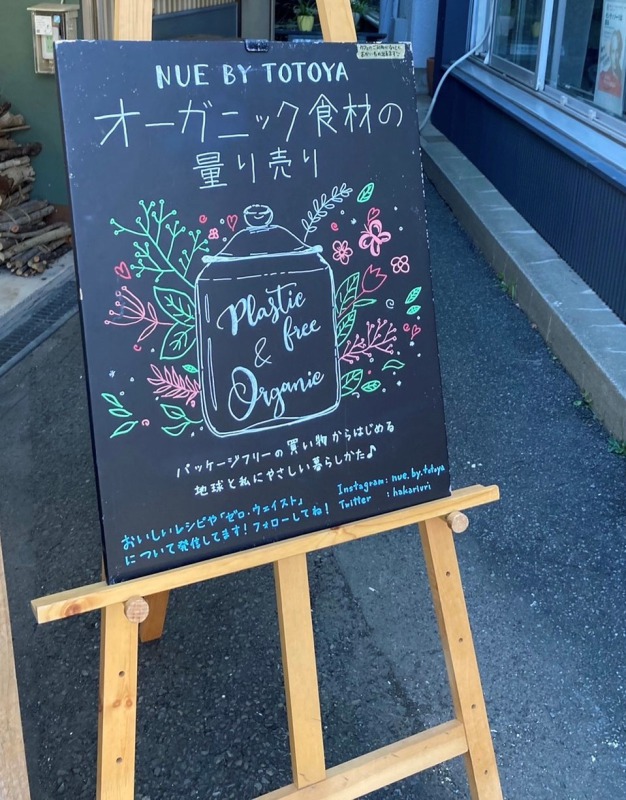 NUE BY TOTOYA
オーガニック食材の
量り売り
Plastic
free
&
Organic
パッケージフリーの買い物からはじめる
地球と私にやさしい暮らしかた♪
おいしいレシピや「ゼロ・ウェイスト」
について発信してます！フォローしてね！
Instagram: nue.by.totoya
Twitter : hakariuri